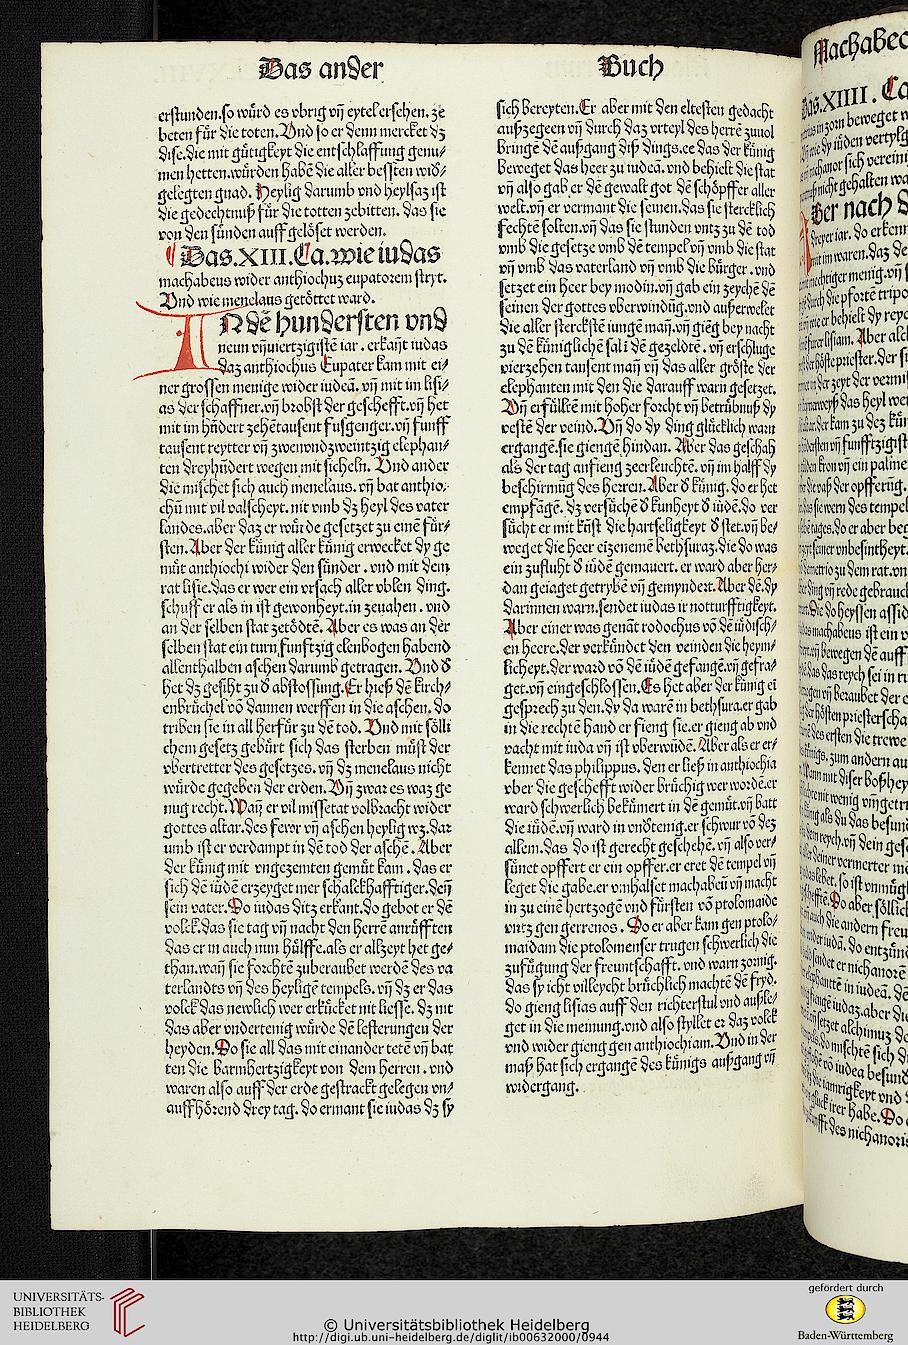 Das ander
Buch
erstunden.so würd es vbrig vñ eytel erschen. ze
beten für die toten. Vnd so er denn mercket dz
dise.die mit gütigkeyt die entschlaffung genu⸗
men hetten.würden habē die aller bessten wid⸗
gelegten gnad. Heylig darumb vnd heylsaz ist
die gedechtnuß für die totten zebitten. das sie
von den sünden auff gelöset werden.
¶ Das.XIII.Ca.wie iudas
machabeus wider anthiochuz eupatorem stryt.
Vnd wie menelaus getöttet ward.
IN dē hundersten vnd
neun vñ viertzigistē iar . erkañt iudas
daz anthiochus Eupater kam mit ei⸗
ner grossen menige wider iudeā. vñ mit im lisi⸗
as der schaffner.vñ brobst der geschefft.vñ het
mit im hūdert zehētausent fusgenger.vñ fünff
tausent reytter vñ zwenvndzweintzig elephan⸗
ten dreyhūdert wegen mit sicheln. Vnd ander
die mischet sich auch menelaus. vñ bat anthio⸗
chū mit vil valscheyt. nit vmb dz heyl des vater
landes.aber daz er würde gesetzet zu einē für⸗
sten. Aber der künig aller künig erwecket dy ge
müt anthiochi wider den sünder . vnd mit dem
rat lisie.das er wer ein vrsach aller vblen ding.
schuff er als in ist gewonheyt.in zeuahen . vnd
an der selben stat zetödtē. Aber es was an der
selben stat ein turn funftzig elenbogen habend
allenthalben aschen darumb getragen. Vnd d
het dz gesiht zu d abstossung. Er hieß dē kirch⸗
enbrüchel vō dannen werffen in die aschen. do
triben sie in all herfür zu dē tod. Vnd mit sölli
chem gesetz gebürt sich das sterben müst der
vbertretter des gesetzes. vñ dz menelaus nicht
würde gegeben der erden. Vñ zwar es waz ge
nug recht. Wañ er vil missetat volbracht wider
gottes altar.des fewr vñ aschen heylig wz.dar
umb ist er verdampt in dē tod der aschē. Aber
der künig mit vngezemten gemüt kam . das er
sich dē iūdē erzeyget mer schalckhafftiger.deñ
sein vater. Do iudas ditz erkant.do gebot er dē
volck.das sie tag vñ nacht den herrē anrüfften
das er in auch nun hülffe.als er allzeyt het ge⸗
than.wañ sie forchtē zuberaubet werdē des va
terlandts vñ des heyligē tempels. vñ dz er das
volck das newlich wer erkücket nit liesse. dz nit
das aber vndertenig würde dē lesterungen der
heyden. Do sie all das mit einander tetē vñ bat
ten die barmhertzigkeyt von dem herren . vnd
waren also auff der erde gestrackt gelegen vn⸗
auffhörend drey tag. do ermant sie iudas dz sy
sich bereyten. Er aber mit den eltesten gedacht
außzegeen vñ durch daz vrteyl des herrē zuuol
bringē dē außgang diß dings.ee das der künig
beweget das heer zu iudea. vnd behielt die stat
vñ also gab er dē gewalt got dē schöpffer aller
welt.vñ er vermant die seinen.das sie stercklich
fechtē solten.vñ das sie stunden vntz zu dē tod
vmb die gesetze vmb dē tempel vñ vmb die stat
vñ vmb das vaterland vñ vmb die bürger . vnd
setzet ein heer bey modin.vñ gab ein zeychē dē
seinen der gottes vberwindūg.vnd außerwelet
die aller sterckstē iungē mañ.vñ gieg bey nacht
zu dē küniglichē sal i dē gezeldtē . vñ erschluge
vierzehen tausent mañ vñ das aller gröste der
elephanten mit den die darauff warn gesetzet.
Vñ erfülltē mit hoher forcht vñ betrübnuß dy
vestē der veind. Vñ do dy ding glücklich warn
ergangē.sie giengē hindan. Aber das geschah
als der tag anfieng zeerleuchtē. vñ im halff dy
beschirmūg des herren. Aber d künig. do er het
empfāgē. dz versüchē d künheyt d iudē.do ver
sücht er mit kūst die hartseligkeyt d stet.vñ be⸗
weget die heer eizenemē bethsuraz.die do was
ein zufluht d iūdē gemauert. er ward aber her⸗
dan geiaget getrybē vñ gemyndert. Aber dē.dy
darinnen warn.sendet iudas ir notturfftigkeyt.
Aber einer was genāt rodochus vō dē iūdisch⸗
en heere.der verkündet den veinden die heym⸗
licheyt.der ward vō dē iūdē gefangē.vñ gefra⸗
get.vñ eingeschlossen. Es het aber der künig ei
gesprech zu den.dy da warē in bethsura.er gab
in die rechtē hand er fieng sie.er gieng ab vnd
vacht mit iuda vñ ist vberwūdē. Aber als er er⸗
kennet das philippus. den er ließ in anthiochia
vber die geschefft wider brüchig wer wordē.er
ward schwerlich bekümert in dē gemüt.vñ batt
die iūdē.vñ ward in vndtenig.er schwur vō dez
allem.das do ist gerecht geschehē. vñ also ver⸗
sünet opffert er ein opffer.er eret dē tempel vñ
leget die gabe.er vmhalset machabeū vñ macht
in zu einē hertzogē vnd fürsten vō ptolomaide
vntz gen gerrenos . Do er aber kam gen ptolo⸗
maidam die ptolomenser trugen schwerlich die
zufügung der freuntschafft. vnd warn zornig.
das sy icht villeycht brüchlich machtē dē fryd.
do gieng lisias auff den richterstul vnd außle⸗
get in die meinung.vnd also styllet er daz volck
vnd wider gieng gen anthiochiam. Vnd in der
maß hat sich ergangē des künigs außgang vñ
widergang.
Machabeo
Das.XIIII. Ca
Der nach d
UNIVERSITÄTS-
BIBLIOTHEK
HEIDELBERG
© Universitätsbibliothek Heidelberg
http://digi.ub.uni-heidelberg.de/diglit/ib00632000/0944
gefördert durch
Baden-Württemberg